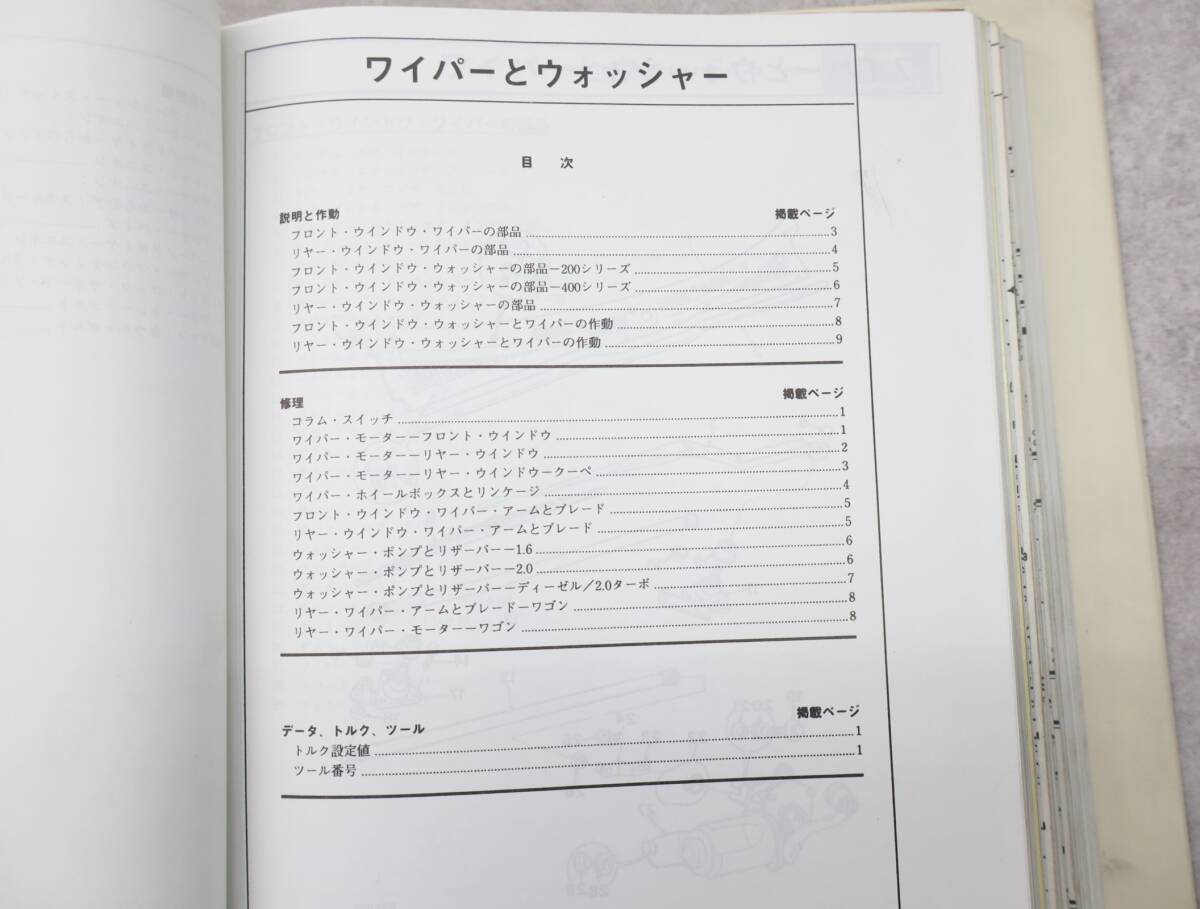 ワイパーとウォッシャー
目 次
説明と作動 掲載ページ
フロント・ウインドウ・ワイパーの部品 3
リヤー・ウインドウ・ワイパーの部品 4
フロント・ウインドウ・ウォッシャーの部品ー200シリーズ 5
フロント・ウインドウ・ウォッシャーの部品ー400シリーズ 6
リヤー・ウインドウ・ウォッシャーの部品 7
フロント・ウインドウ・ウォッシャーとワイパーの作動 8
リヤー・ウインドウ・ウォッシャーとワイパーの作動 9
修理 掲載ページ
コラム・スイッチ 1
ワイパー・モーターーフロント・ウインドウ 1
ワイパー・モーターーリヤー・ウインドウ 2
ワイパー・モーターーリヤー・ウインドウークーペ 3
ワイパー・ホイールボックスとリンケージ 4
フロント・ウインドウ・ワイパー・アームとブレード 5
リヤー・ウインドウ・ワイパー・アームとブレード 5
ウォッシャー・ポンプとリザーバーー1.6 6
ウォッシャー・ポンプとリザーバーー2.0 6
ウォッシャー・ポンプとリザーバーーディーゼル/2.0ターボ 7
リヤー・ワイパー・アームとブレードーワゴン 8
リヤー・ワイパー・モーターーワゴン 8
データ、トルク、ツール 掲載ページ
トルク設定値 1
ツール番号 1